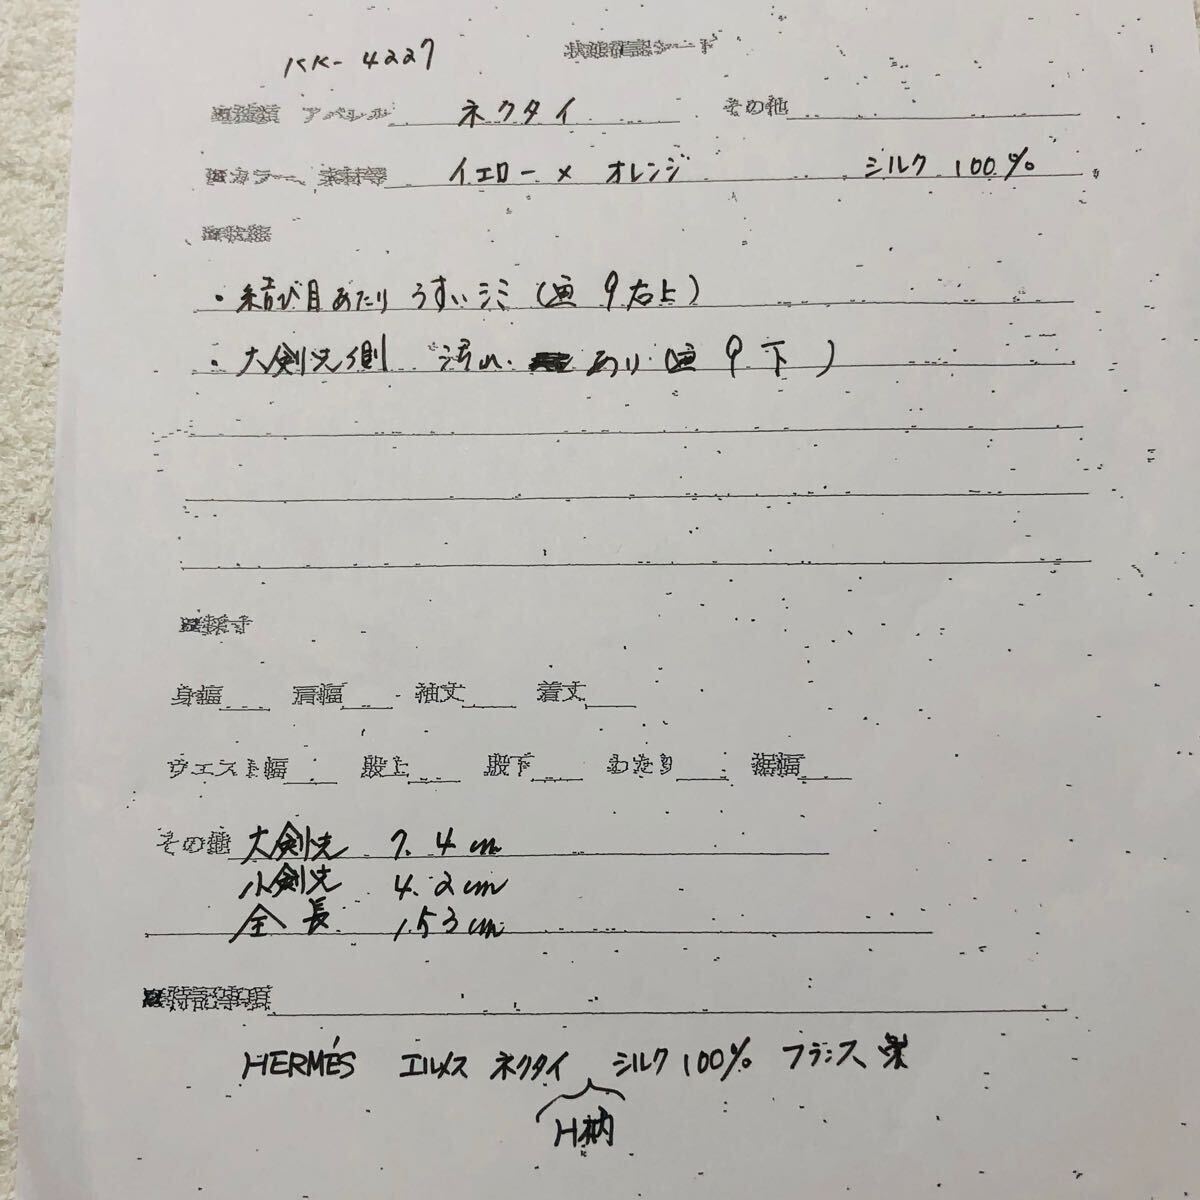 KK-4227
状態確認シート
■種類 アパレル ネクタイ その他
■カラー、素材等 イエロー × オレンジ シルク 100%
■状態
・結び目あたり うすいシミ (画 9 右上)
・大剣先側 汚れ あり (画 9 下)
■採寸
身幅 肩幅 袖丈 着丈
ウエスト幅 股上 股下 わたり 裾幅
その他 大剣先 7.4cm
小剣先 4.2cm
全長 153cm
■特記事項
HERMÉS エルメス ネクタイ シルク100% フランス製
H柄